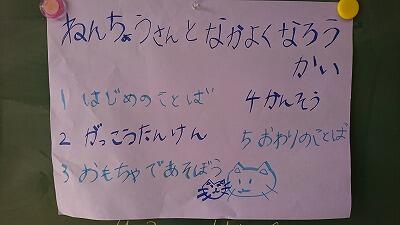 ねんちょうさんとなかよくなろう
かい
1 はじめのことば
2 がっこうたんけん
3 おもちゃであそぼう
4 かんそう
5 おわりのことば